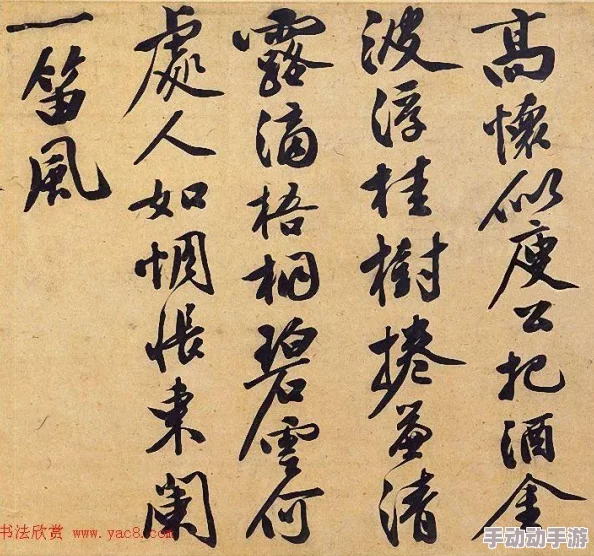 高懷似庾公把酒金
波浮桂樹捲簾清
露滴梧桐碧雲何
處人如惆悵東闌
一笛風
书法欣赏 www.yac8.com
手动动手游